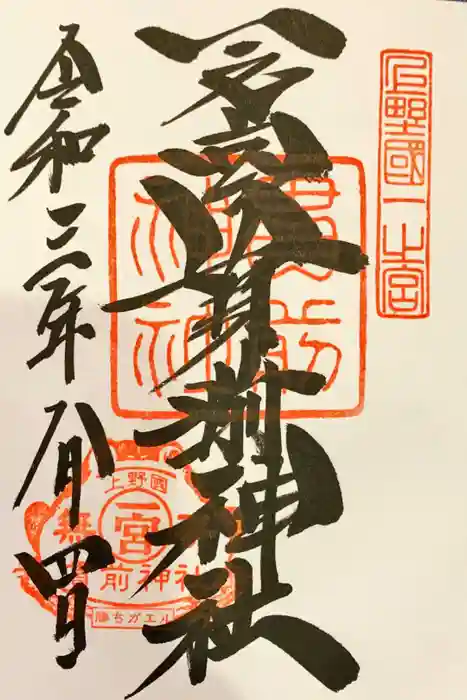 上野國一之宮
一之宮貫前神社
貫前神社
令和三年八月四日
上野國
一宮
無
貫前神社
勝ちガエル